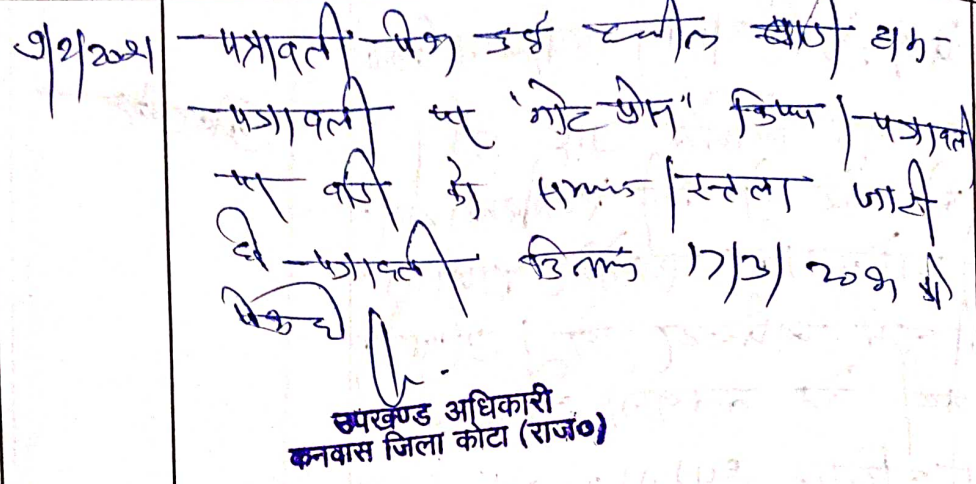 9/2/2021 पत्रावली पेश हुई वकील
पत्रावली पर "नोट प्रेस" किया । पत्रावली
को इत्तला जारी
हो पत्रावली दिनांक 17/3/2021 को
पेश हो
उपखण्ड अधिकारी
कनवास जिला कोटा (राज०)